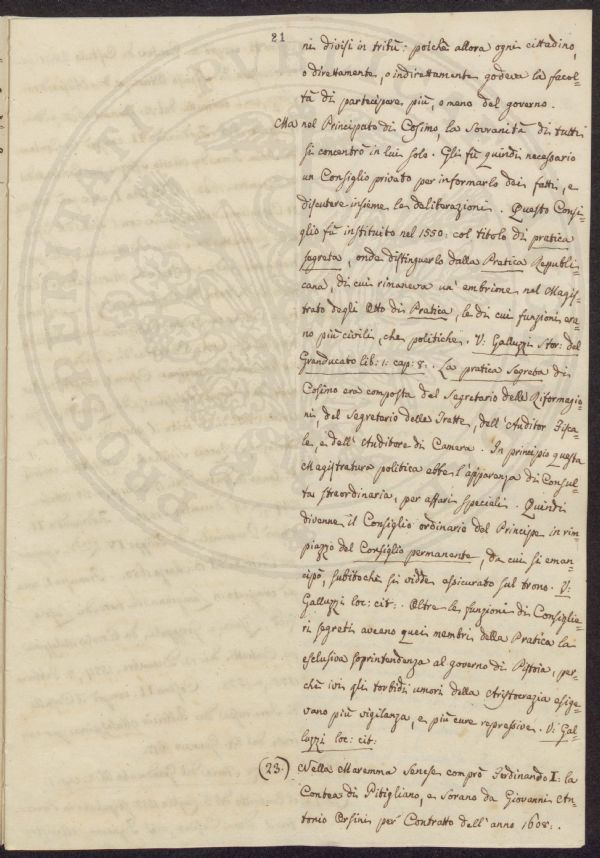 21
ni divisi in tribù: poichè allora ogni cittadino,
o direttamente, o indirettamente godeva la facol=
tà di partecipare più, o meno del governo.
Ma nel Principato di Cosimo, la Sovranità di tutti
si concentrò in lui solo. Gli fù quindi necessario
un Consiglio privato per informarlo dei fatti, e
discutere insieme le deliberazioni. Questo Consi=
glio fù instituito nel 1550: col titolo di pratica
segreta, onde distinguerlo dalla Pratica Republi
cana, di cui rimaneva un' embrione nel Magis=
trato degli Otto di Pratica, le di cui funzioni era=
no più civili, che politiche. V: Galluzzi Stor: del
Granducato lib: 1: cap: 8:. La pratica Segreta di
Cosimo era composta del Segretario delle Riformagio=
ni, del Segretario delle Tratte, dell'Auditor Fisca=
le, e dell'Auditore di Camera. In principio questa
Magistratura politica ebbe l'apparenza di Consul=
ta straordinaria, per affari speciali. Quindi
divenne il Consiglio ordinario del Principe in rim=
piazzo del Consiglio permanente, da cui si eman=
cipò, subitochè si vidde assicurato sul trono. V:
Galluzzi loc: cit:. Oltre le funzioni di Consiglie=
ri segreti aveano quei membri della Pratica la
esclusiva soprintendenza al governo di Pistoia, per=
chè ivi gli torbidi umori della Aristocrazia esige=
vano più vigilanza, e più cure repressive. V: Gal=
luzzi loc: cit:
(23.) Nella Maremma Senese comprò Ferdinando I: la
Contea di Pitigliano, e Sorano da Giovanni An=
tonio Orsini per Contratto dell'anno 1608:.
PROSPERITATI PUBLICAE